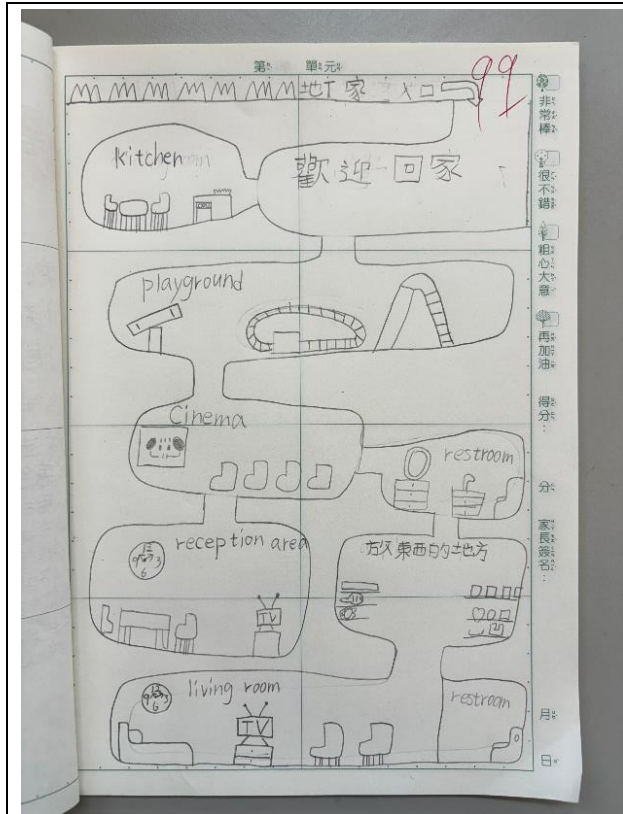 第 單元
地下家 入口
99
kitchen
歡迎回家
playground
Cinema
restroom
reception area
12
9 3
6
TV
放東西的地方
living room
12
9 3
6
TV
restroom
非常棒
很不錯
粗心大意
再加油
得分：
分
家長簽名：
月
日